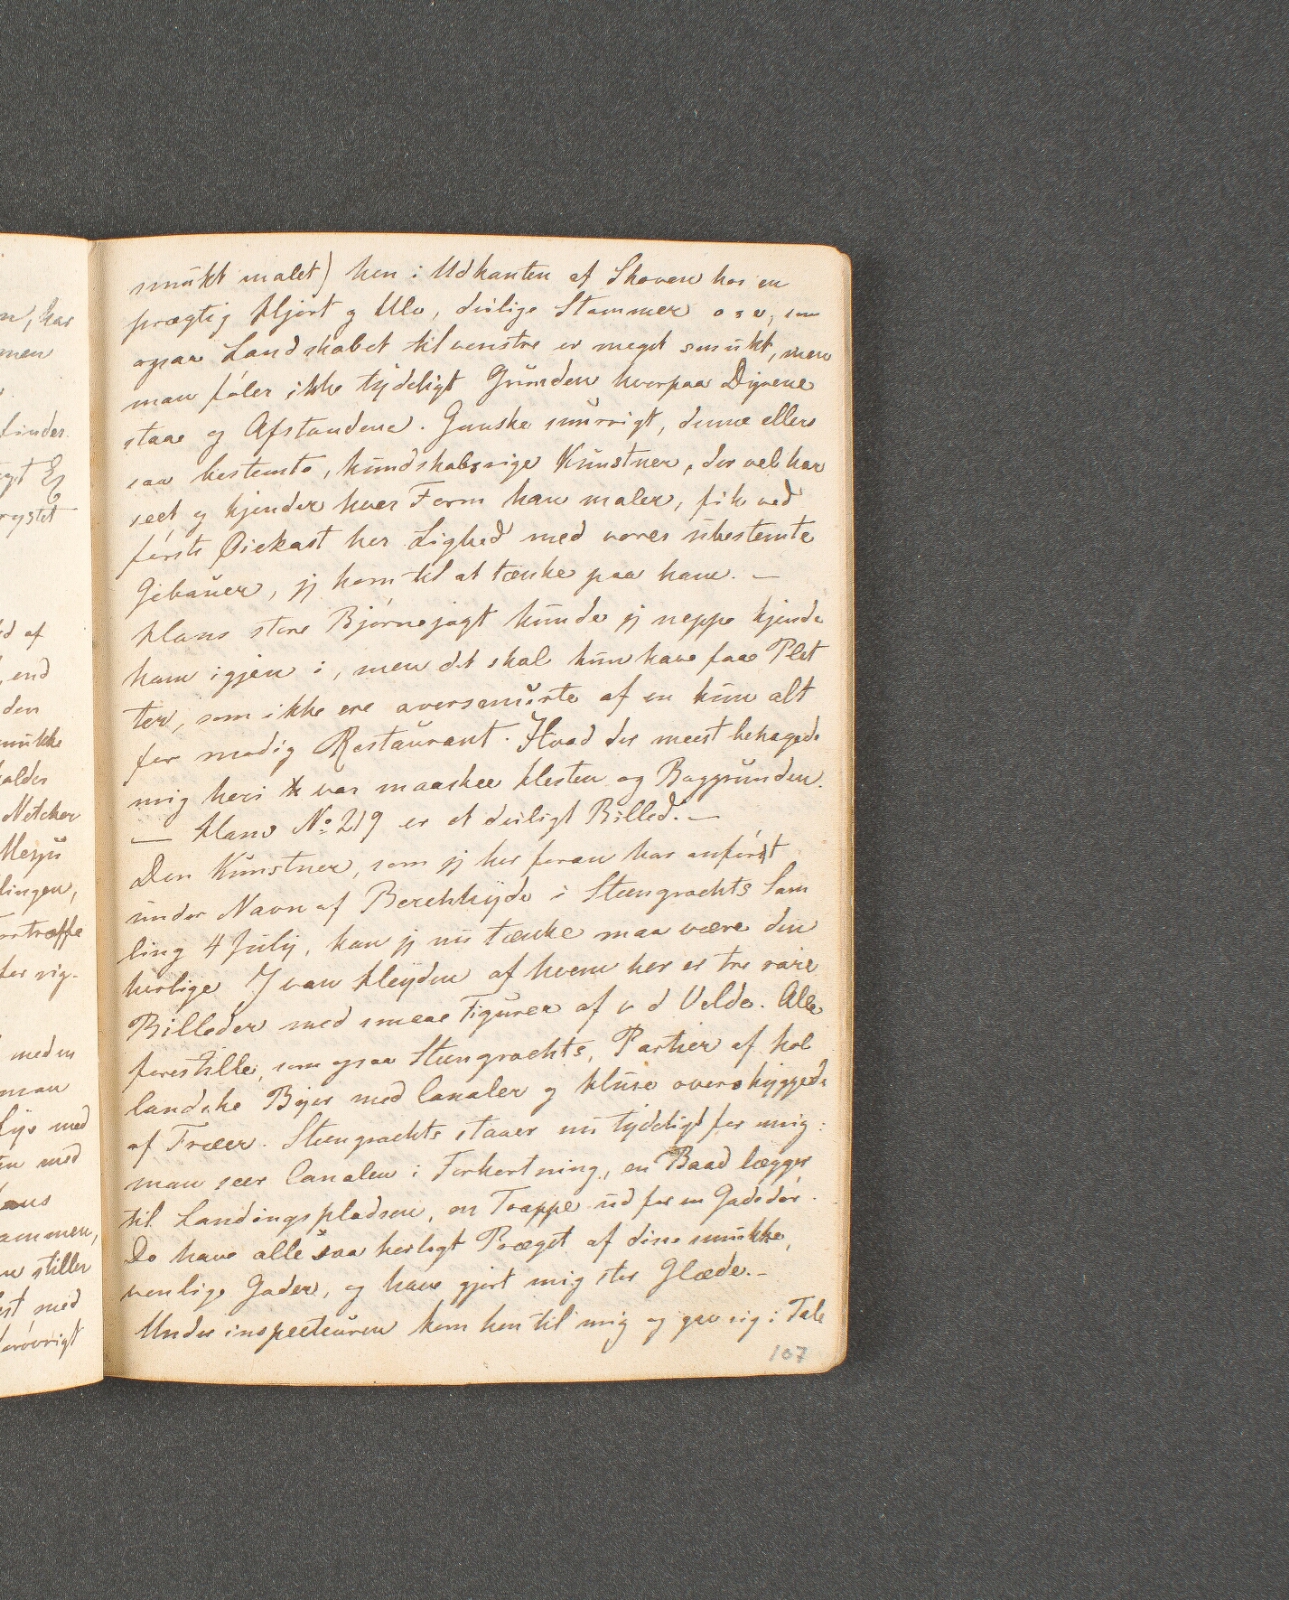 smukt malet) hen i Udkanten af Skoven har en
prægtig Hjort og Ulv, deilige Stammer o s v, som
ogsaa Landskabet til venstre er meget smukt, men
man føler ikke tydeligt Grunden hvorpaa Dyrene
staae og Afstandene. Ganske snurrigt, denne ellers
saa bestemte, kundskabsrige Kunstner, der vel har
seet og kjender hver Form han maler, fik ved
første Øiekast her Lighed med vores ubestemte
Gebauer, jeg kom til at tænke paa ham. —
Hans store Bjørnejagt kunde jeg neppe kjende
ham igjen i, men det skal kun have faae Plet
ter, som ikke ere oversmurte af en kun alt
for modig Restaurant. Hvad der meest behagede
mig heri var maaskee Hesten og Baggrunden.
— Hans No 219 er et deiligt Billed. —
Den Kunstner, som jeg her foran har anført
under Navn af Berchhyde i Steengrachts Sam
ling 4 July, kan jeg nu tænke maa være den
herlige J van Heyden af hvem her er tre rare
Billeder med smaae Figurer af v d Velde. Alle
forestille, som ogsaa Steengrachts, Partier af hol
landske Byer med Canaler og Huse overskyggede
af Træer. Steengrachts staaer nu tydeligt for mig:
man seer Canalen i Forkortning, en Baad lægger
til Landingspladsen, en Trappe ud for en Gadedør.
De have alle saa herligt Præget af disse smukke,
venlige Gader, og have gjort mig stor Glæde. —
Underinspecteuren kom hen til mig og gav sig i Tale
107